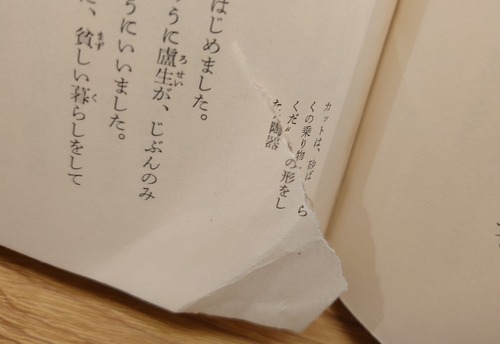 カットは、砂ば
くの乗り物、ら
くだの形をし
た陶器
はじめました。
うに盧生が、じぶんのみ
うにいいました。
、貧しい暮らしをして